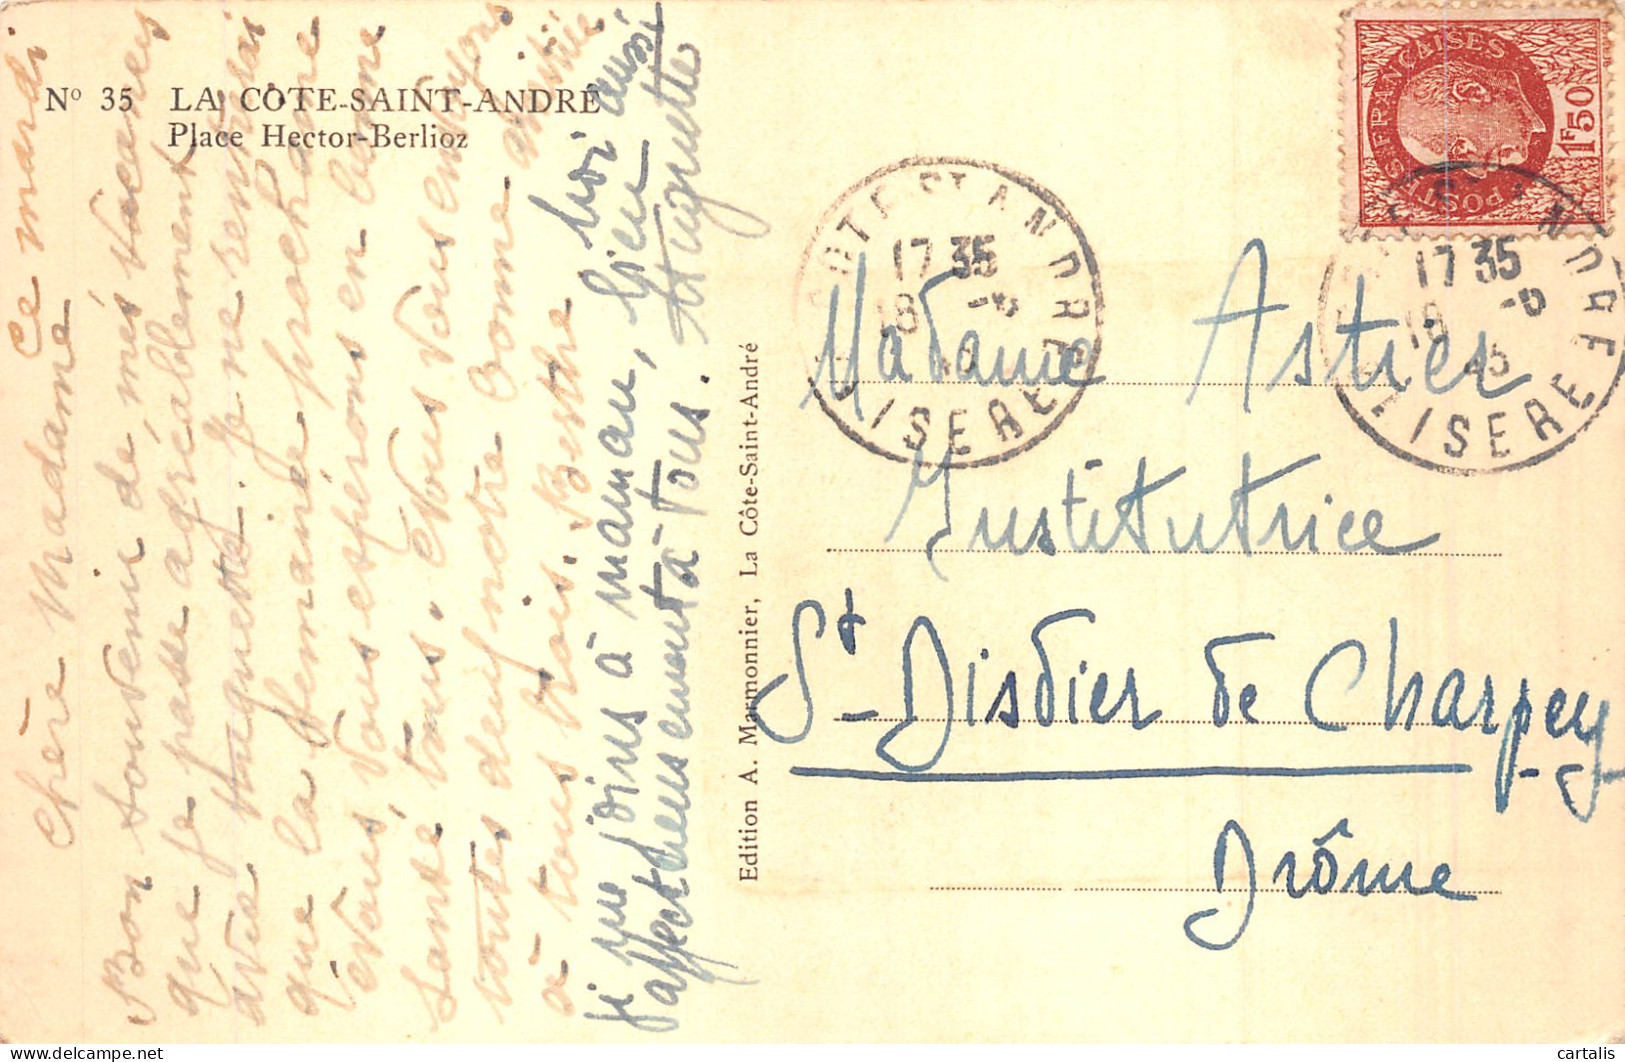 N° 35 LA CÔTE-SAINT-ANDRÉ
Place Hector-Berlioz
Ce mardi
Chère Madame
Bon souvenir de mes vacances
que je passe agréablement
avec Huguette. Je ne rentrerai
que la semaine prochaine
vous espérons en bonne
santé, tous. Nous vous envoyons
toutes deux notre bonne amitié
à tous trois. Berthe
Moi aussi
je me joins à maman, bien
affectueusement à tous.
Huguette
Edition A. Marmonnier, La Côte-Saint-André
POSTES FRANÇAISES
1F50
COTE ST ANDRE
17 35
18 -6
ISERE
COTE ST ANDRE
17 35
18 -6
43
ISERE
Madame Astier
Institutrice
St-Didier de Charpey
Drôme
cartalis